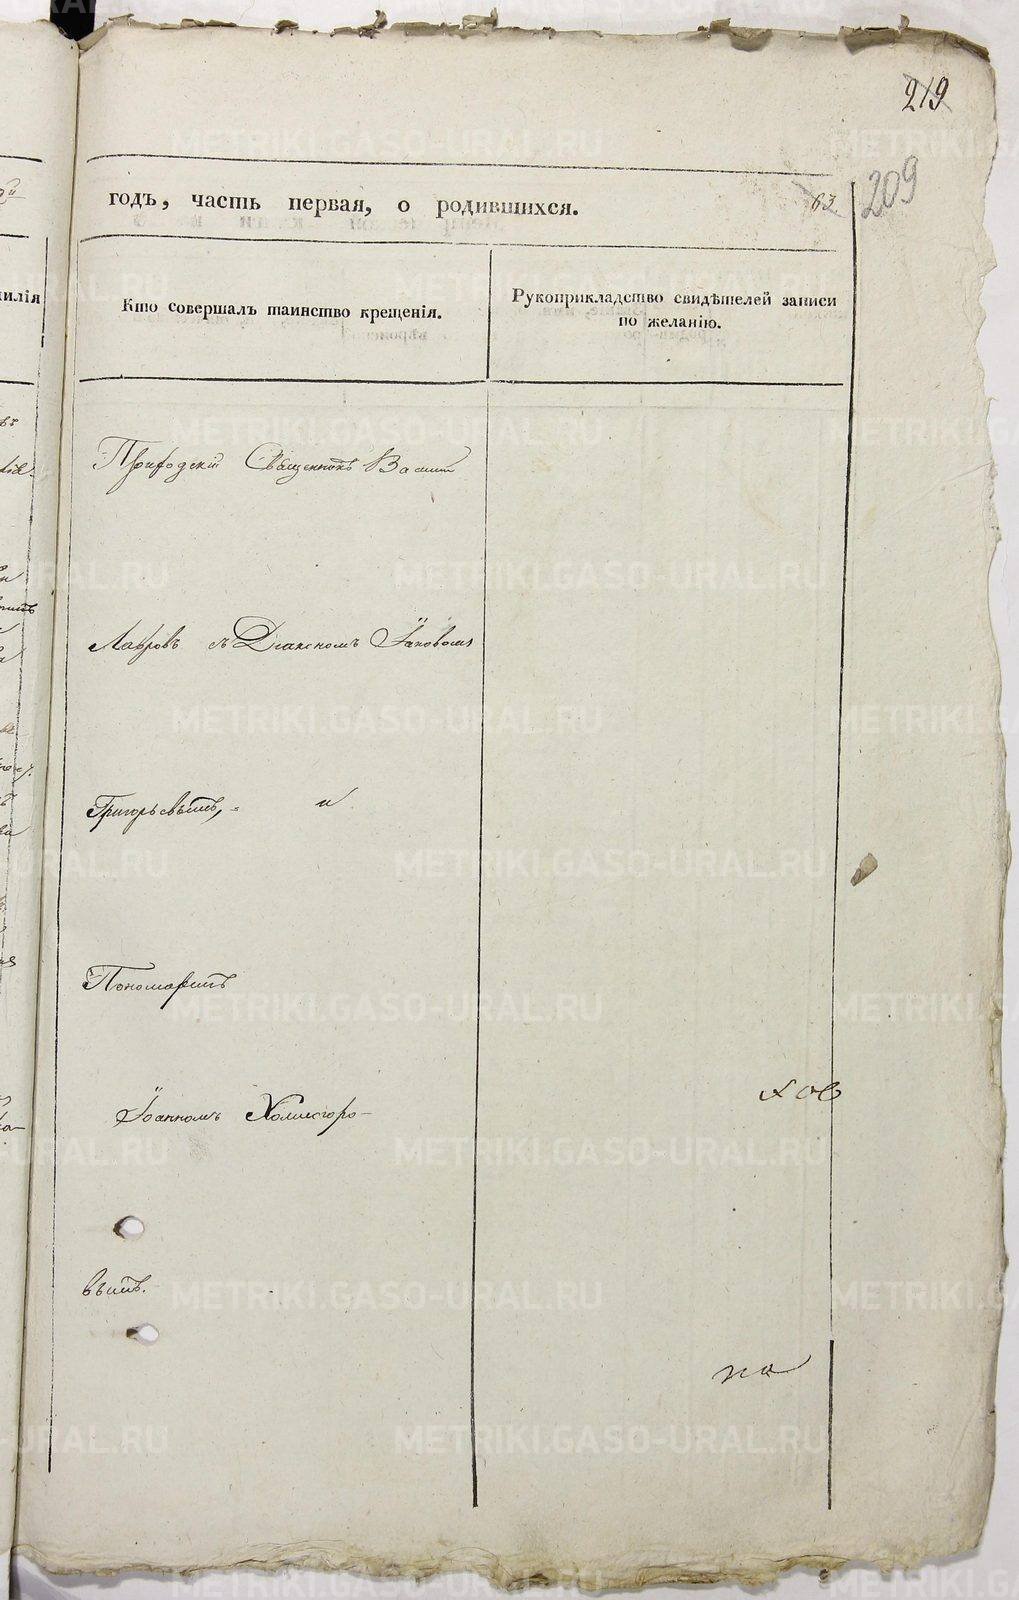 219
209
63
годъ, часть первая, о родившихся.
Кто совершалъ таинство крещенія.
Рукоприкладство свидѣтелей записи
по желанію.
Приходскій Священникъ Васил
Лавровъ съ Діакономъ Іаковомъ
Григорьевымъ, и
Пономаремъ
Іоанномъ Холмогоро-
вымъ.
хов
на
METRIKI.GASO-URAL.RU